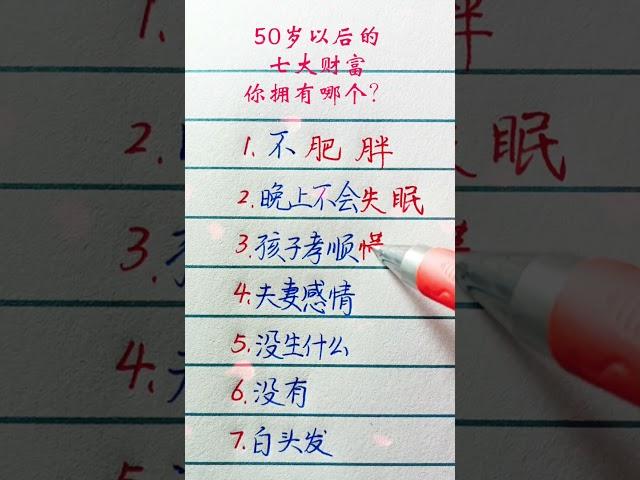 50岁以后的
七大财富
你拥有哪个?
1.不肥胖
2.晚上不会失眠
3.孩子孝顺
4.夫妻感情
5.没生什么
6.没有
7.白头发